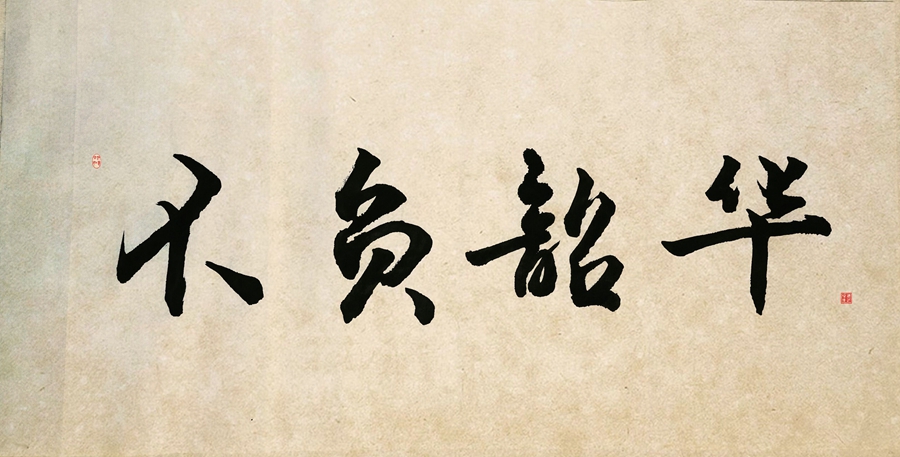 不负韶华